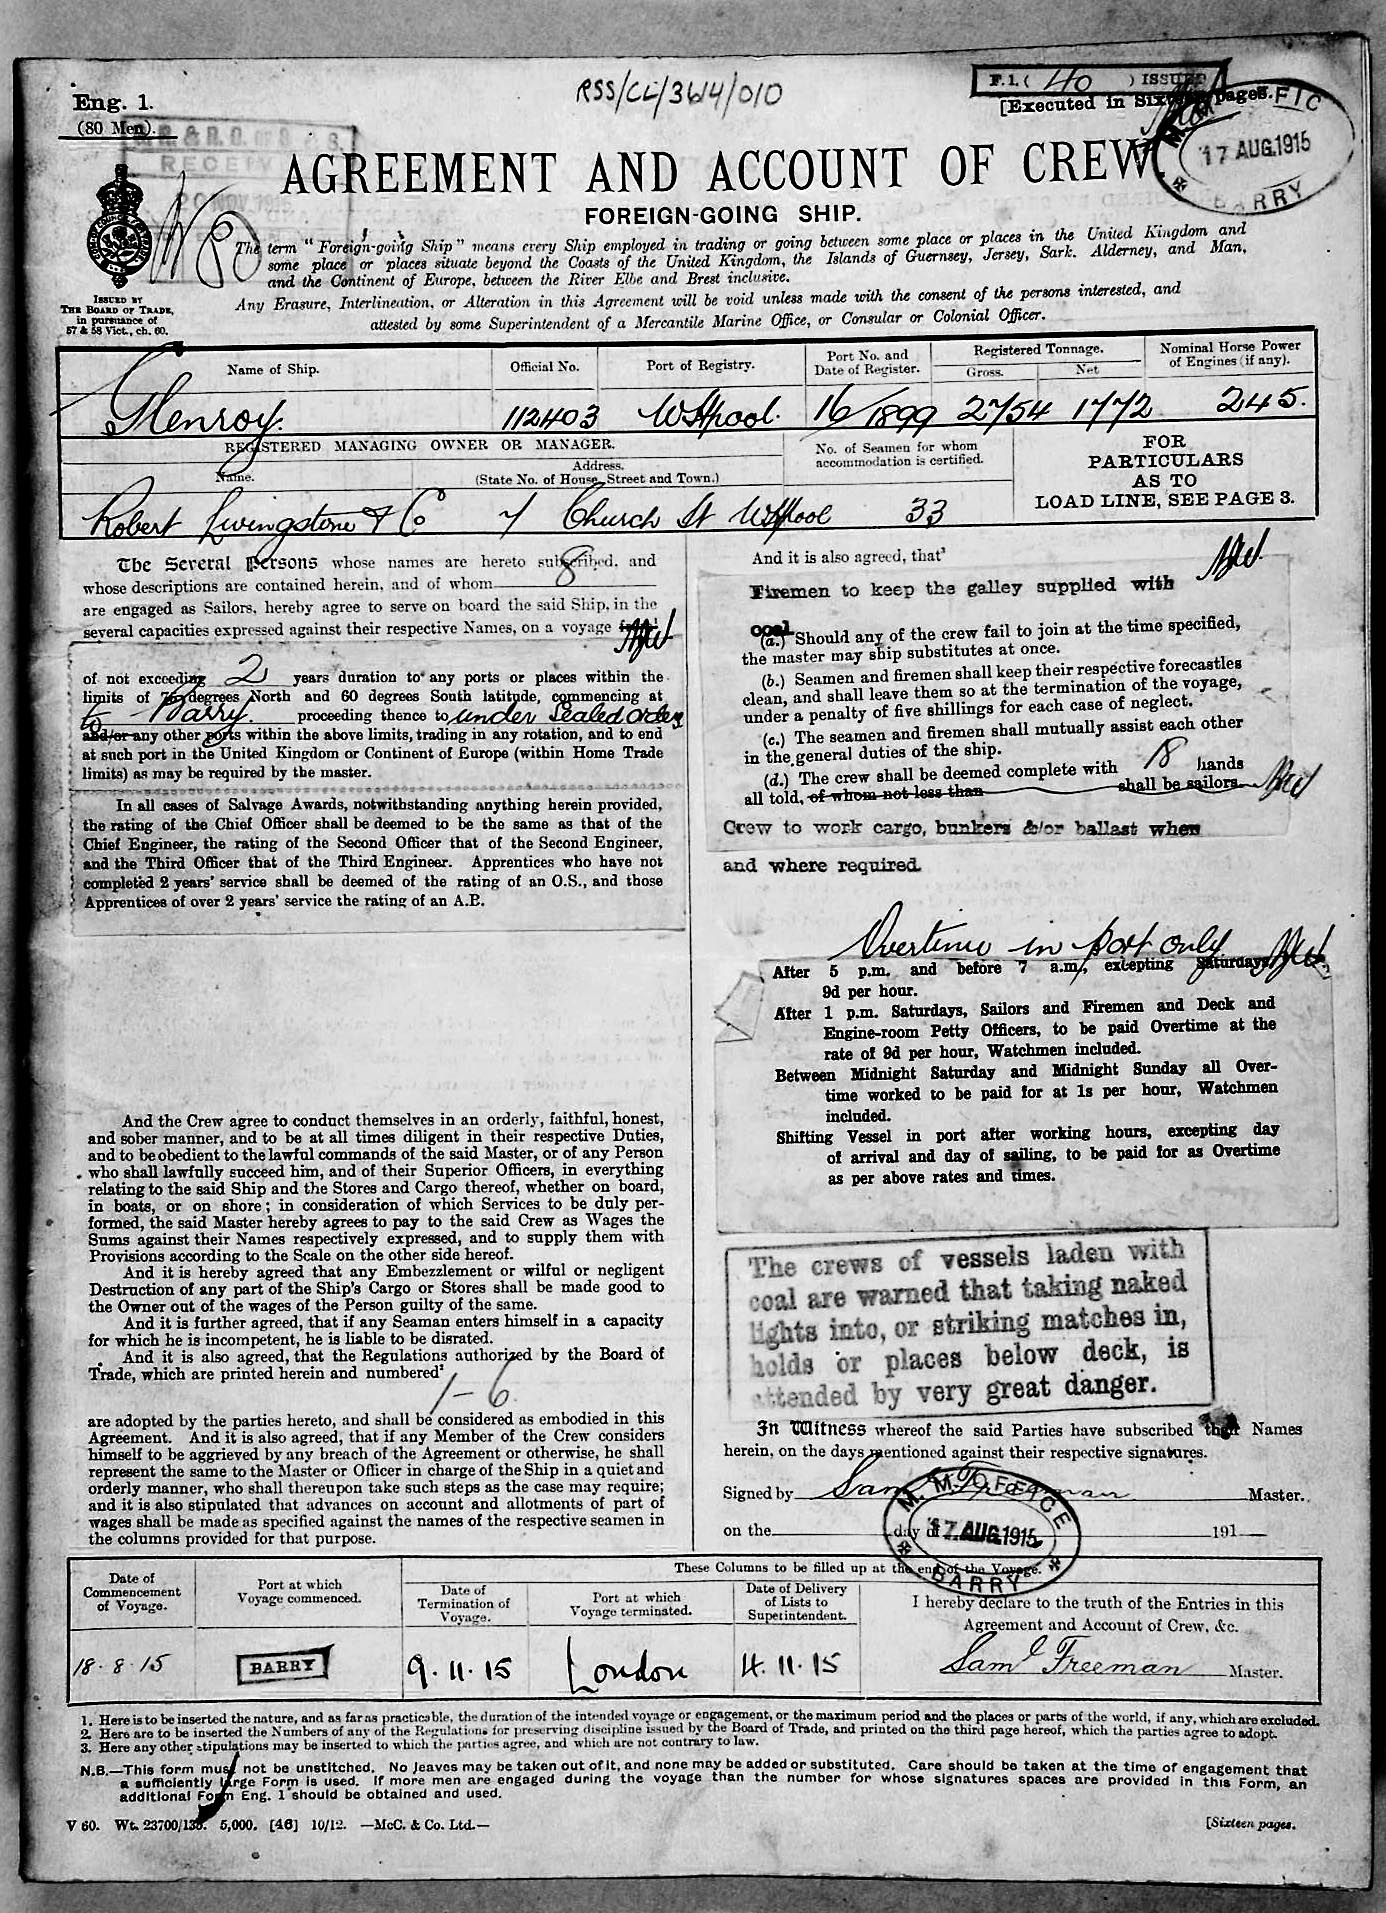 RSS/CL/364/010
F.1. ( 40 ) ISSUED
Eng. 1.
(80 Men).
[Executed in Sixteen pages.
17 AUG.1915
BARRY
RECEIV
AGREEMENT AND ACCOUNT OF CREW
FOREIGN-GOING SHIP.
The term "Foreign-going Ship" means every Ship employed in trading or going between some place or places in the United Kingdom and
some place or places situate beyond the Coasts of the United Kingdom, the Islands of Guernsey, Jersey, Sark, Alderney, and Man,
and the Continent of Europe, between the River Elbe and Brest inclusive.
Any Erasure, Interlineation, or Alteration in this Agreement will be void unless made with the consent of the persons interested, and
attested by some Superintendent of a Mercantile Marine Office, or Consular or Colonial Officer.
ISSUED BY
THE BOARD OF TRADE,
in pursuance of
57 & 58 Vict., ch. 60.
Name of Ship.
Official No.
Port of Registry.
Port No. and
Date of Register.
Registered Tonnage.
Gross.
Net
Nominal Horse Power
of Engines (if any).
Glenroy.
112403
W Hpool.
16/1899
2754
1772
245.
REGISTERED MANAGING OWNER OR MANAGER.
Name.
Address.
(State No. of House, Street and Town.)
No. of Seamen for whom
accommodation is certified.
FOR
PARTICULARS
AS TO
LOAD LINE, SEE PAGE 3.
Robert Livingstone & Co
7 Church St W Hpool
33
The Several Persons whose names are hereto subscribed, and
whose descriptions are contained herein, and of whom 8
are engaged as Sailors, hereby agree to serve on board the said Ship, in the
several capacities expressed against their respective Names, on a voyage
of not exceeding 2 years duration to any ports or places within the
limits of 75 degrees North and 60 degrees South latitude, commencing at
Barry. proceeding thence to under Sealed orders
to
and/or any other ports within the above limits, trading in any rotation, and to end
at such port in the United Kingdom or Continent of Europe (within Home Trade
limits) as may be required by the master.
In all cases of Salvage Awards, notwithstanding anything herein provided,
the rating of the Chief Officer shall be deemed to be the same as that of the
Chief Engineer, the rating of the Second Officer that of the Second Engineer,
and the Third Officer that of the Third Engineer. Apprentices who have not
completed 2 years' service shall be deemed of the rating of an O.S., and those
Apprentices of over 2 years' service the rating of an A.B.
And the Crew agree to conduct themselves in an orderly, faithful, honest,
and sober manner, and to be at all times diligent in their respective Duties,
and to be obedient to the lawful commands of the said Master, or of any Person
who shall lawfully succeed him, and of their Superior Officers, in everything
relating to the said Ship and the Stores and Cargo thereof, whether on board,
in boats, or on shore; in consideration of which Services to be duly per-
formed, the said Master hereby agrees to pay to the said Crew as Wages the
Sums against their Names respectively expressed, and to supply them with
Provisions according to the Scale on the other side hereof.
And it is hereby agreed that any Embezzlement or wilful or negligent
Destruction of any part of the Ship's Cargo or Stores shall be made good to
the Owner out of the wages of the Person guilty of the same.
And it is further agreed, that if any Seaman enters himself in a capacity
for which he is incompetent, he is liable to be disrated.
And it is also agreed, that the Regulations authorized by the Board of
Trade, which are printed herein and numbered²
1-6.
are adopted by the parties hereto, and shall be considered as embodied in this
Agreement. And it is also agreed, that if any Member of the Crew considers
himself to be aggrieved by any breach of the Agreement or otherwise, he shall
represent the same to the Master or Officer in charge of the Ship in a quiet and
orderly manner, who shall thereupon take such steps as the case may require;
and it is also stipulated that advances on account and allotments of part of
wages shall be made as specified against the names of the respective seamen in
the columns provided for that purpose.
And it is also agreed, that³
Firemen to keep the galley supplied with
coal
(a.) Should any of the crew fail to join at the time specified,
the master may ship substitutes at once.
(b.) Seamen and firemen shall keep their respective forecastles
clean, and shall leave them so at the termination of the voyage,
under a penalty of five shillings for each case of neglect.
(c.) The seamen and firemen shall mutually assist each other
in the general duties of the ship.
(d.) The crew shall be deemed complete with 18 hands
all told, of whom not less than shall be sailors.
Crew to work cargo, bunkers &/or ballast when
and where required.
Overtime in port only
After 5 p.m. and before 7 a.m., excepting Saturdays,
9d per hour.
After 1 p.m. Saturdays, Sailors and Firemen and Deck and
Engine-room Petty Officers, to be paid Overtime at the
rate of 9d per hour, Watchmen included.
Between Midnight Saturday and Midnight Sunday all Over-
time worked to be paid for at 1s per hour, Watchmen
included.
Shifting Vessel in port after working hours, excepting day
of arrival and day of sailing, to be paid for as Overtime
as per above rates and times.
The crews of vessels laden with
coal are warned that taking naked
lights into, or striking matches in,
holds or places below deck, is
attended by very great danger.
In Witness whereof the said Parties have subscribed their Names
herein, on the days mentioned against their respective signatures.
Signed by Saml Freeman Master.
on the day of 191
M. M. OFFICE
17 AUG.1915
BARRY
Date of
Commencement
of Voyage.
Port at which
Voyage commenced.
These Columns to be filled up at the end of the Voyage.
Date of
Termination of
Voyage.
Port at which
Voyage terminated.
Date of Delivery
of Lists to
Superintendent.
I hereby declare to the truth of the Entries in this
Agreement and Account of Crew, &c.
18.8.15
BARRY
9.11.15
London
4.11.15
Saml Freeman Master.
1. Here is to be inserted the nature, and as far as practicable, the duration of the intended voyage or engagement, or the maximum period and the places or parts of the world, if any, which are excluded.
2. Here are to be inserted the Numbers of any of the Regulations for preserving discipline issued by the Board of Trade, and printed on the third page hereof, which the parties agree to adopt.
3. Here any other stipulations may be inserted to which the parties agree, and which are not contrary to law.
N.B.—This form must not be unstitched. No leaves may be taken out of it, and none may be added or substituted. Care should be taken at the time of engagement that
a sufficiently large Form is used. If more men are engaged during the voyage than the number for whose signatures spaces are provided in this Form, an
additional Form Eng. 1 should be obtained and used.
V 60. Wt. 23700/133. 5,000. [46] 10/12. —McC. & Co. Ltd.—
[Sixteen pages.